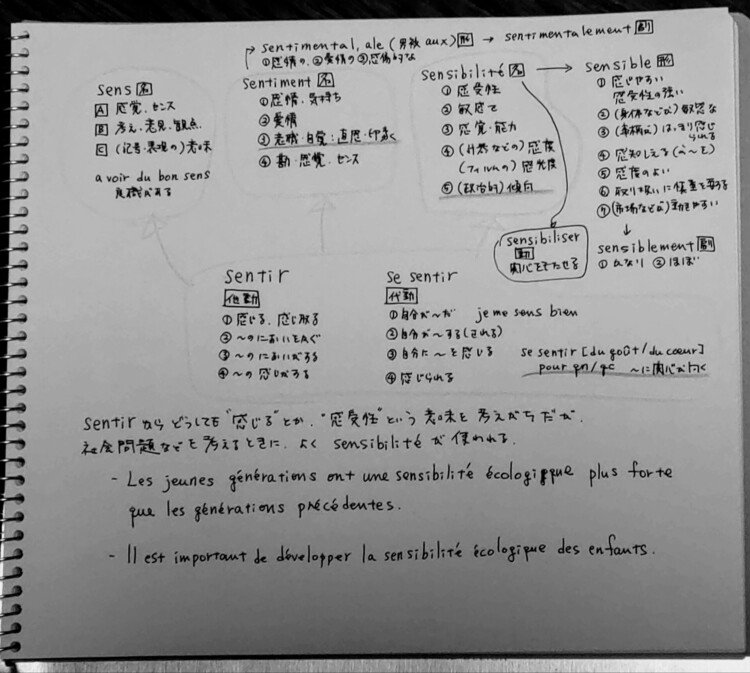 sentimental, ale (男複 aux) 形 → sentimentalement 副
①感情の. ②愛情の ③感傷的な
sens 名
A 感覚. センス
B 考え. 意見. 観点.
C (記号・表現の) 意味
avoir du bon sens
良識がある
sentiment 名
①感情. 気持ち
②愛情
③意識・自覚; 直感・印象
④勘・感覚. センス
sensibilité 名
①感受性
②敏感さ
③感覚・能力
④(計器などの) 感度
(フィルムの) 感光度
⑤(政治的) 傾向
sensible 形
①感じやすい
感受性の強い
②(身体などが) 敏感な
③はっきり感じられる
④感知しうる
⑤感度のよい
⑥取り扱いに慎重を要する
⑦(市場などが) 動きやすい
sensibiliser
動
関心をもたせる
sensiblement 副
①かなり ②ほぼ
sentir
他動
①感じる. 感じ取る
②〜のにおいをかぐ
③〜のにおいがする
④〜の感じがする
se sentir
代動
①自分が〜だ je me sens bien
②自分が〜する(される)
③自分に〜を感じる
④感じられる
se sentir [du goût / du coeur]
pour qn/qc 〜に関心が向く
sentir からどうしても "感じる" とか. "感受性" という意味を考えがちだが.
社会問題などを考えるときに. よく sensibilité が使われる.
- Les jeunes générations ont une sensibilité écologique plus forte
que les générations précédentes.
- Il est important de développer la sensibilité écologique des enfants.